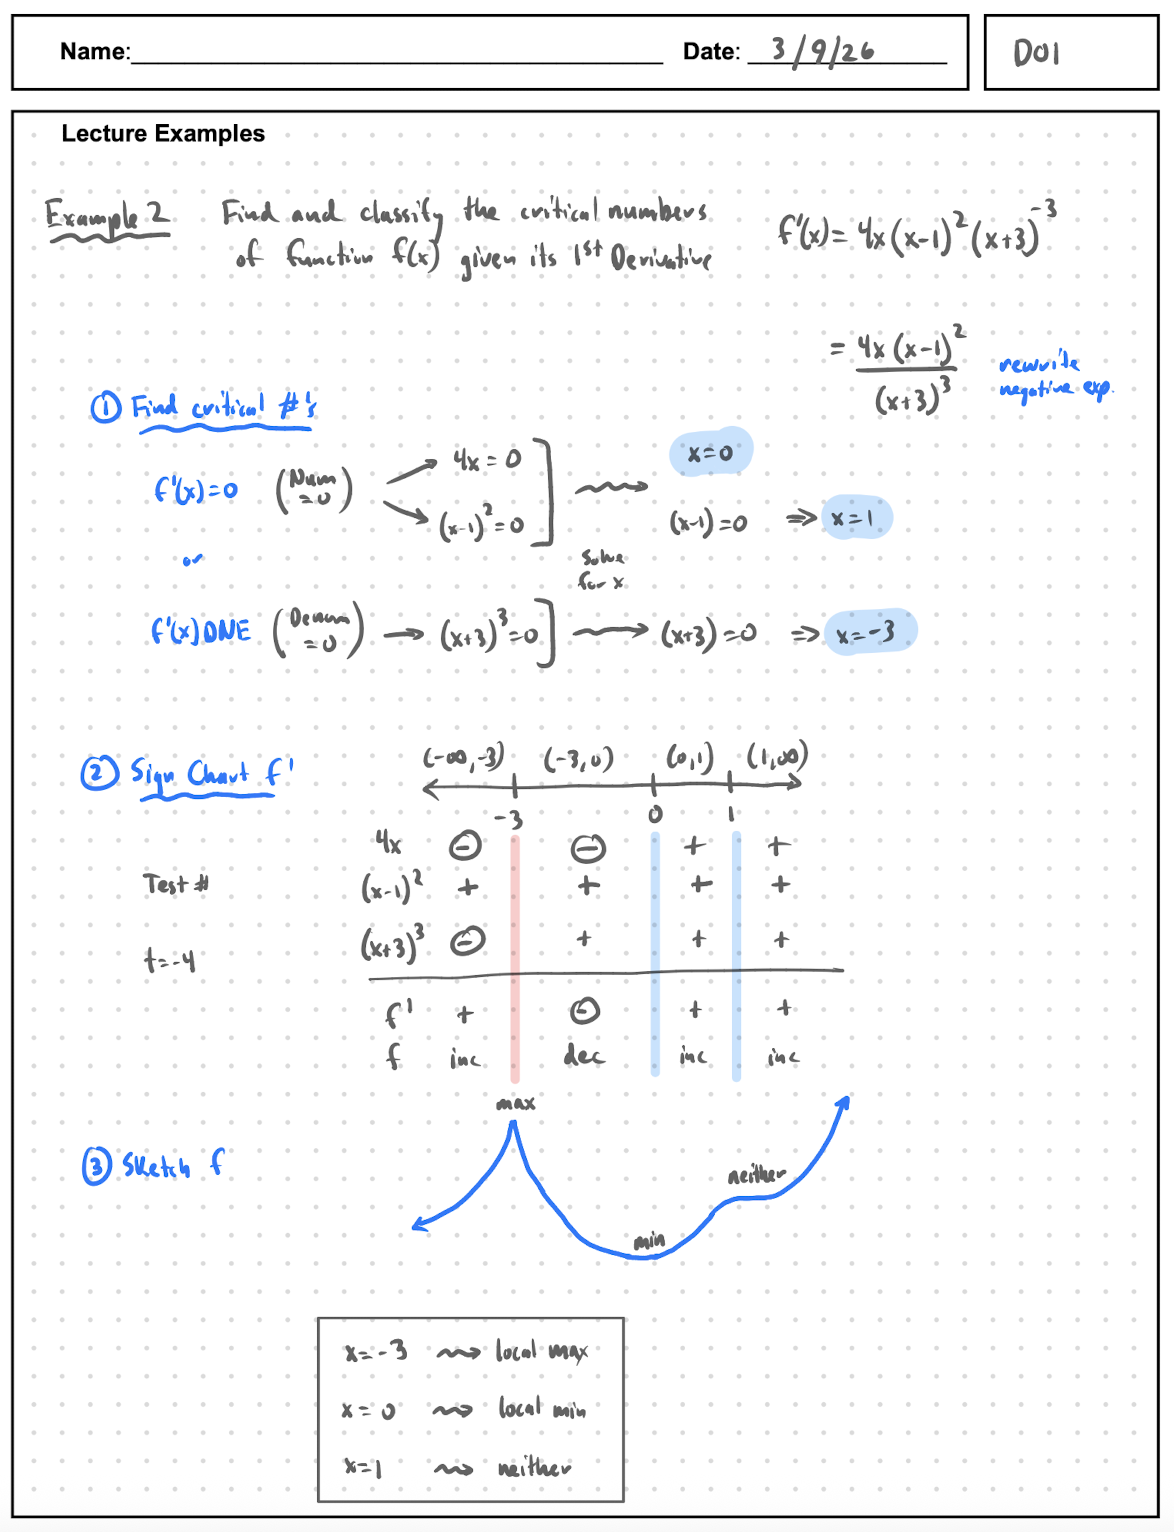 Name: Date: 3/9/26 D01
Lecture Examples
Example 2 Find and classify the critical numbers
of function f(x) given its 1st Derivative
f'(x) = 4x(x-1)^2(x+3)^-3
= 4x(x-1)^2 / (x+3)^3
rewrite
negative exp.
① Find critical #'s
f'(x)=0 (Num =0) → 4x=0 x=0
→ (x-1)^2=0 (x-1)=0 ⇒ x=1
or
solve
for x
f'(x) DNE (Denom =0) → (x+3)^3=0 → (x+3)=0 ⇒ x=-3
② Sign Chart f'
(-∞,-3) (-3,0) (0,1) (1,∞)
-3 0 1
4x ⊖ ⊖ + +
Test # (x-1)^2 + + + +
t=-4 (x+3)^3 ⊖ + + +
f' + ⊖ + +
f inc dec inc inc
max
③ Sketch f
neither
min
x=-3 → local max
x=0 → local min
x=1 → neither